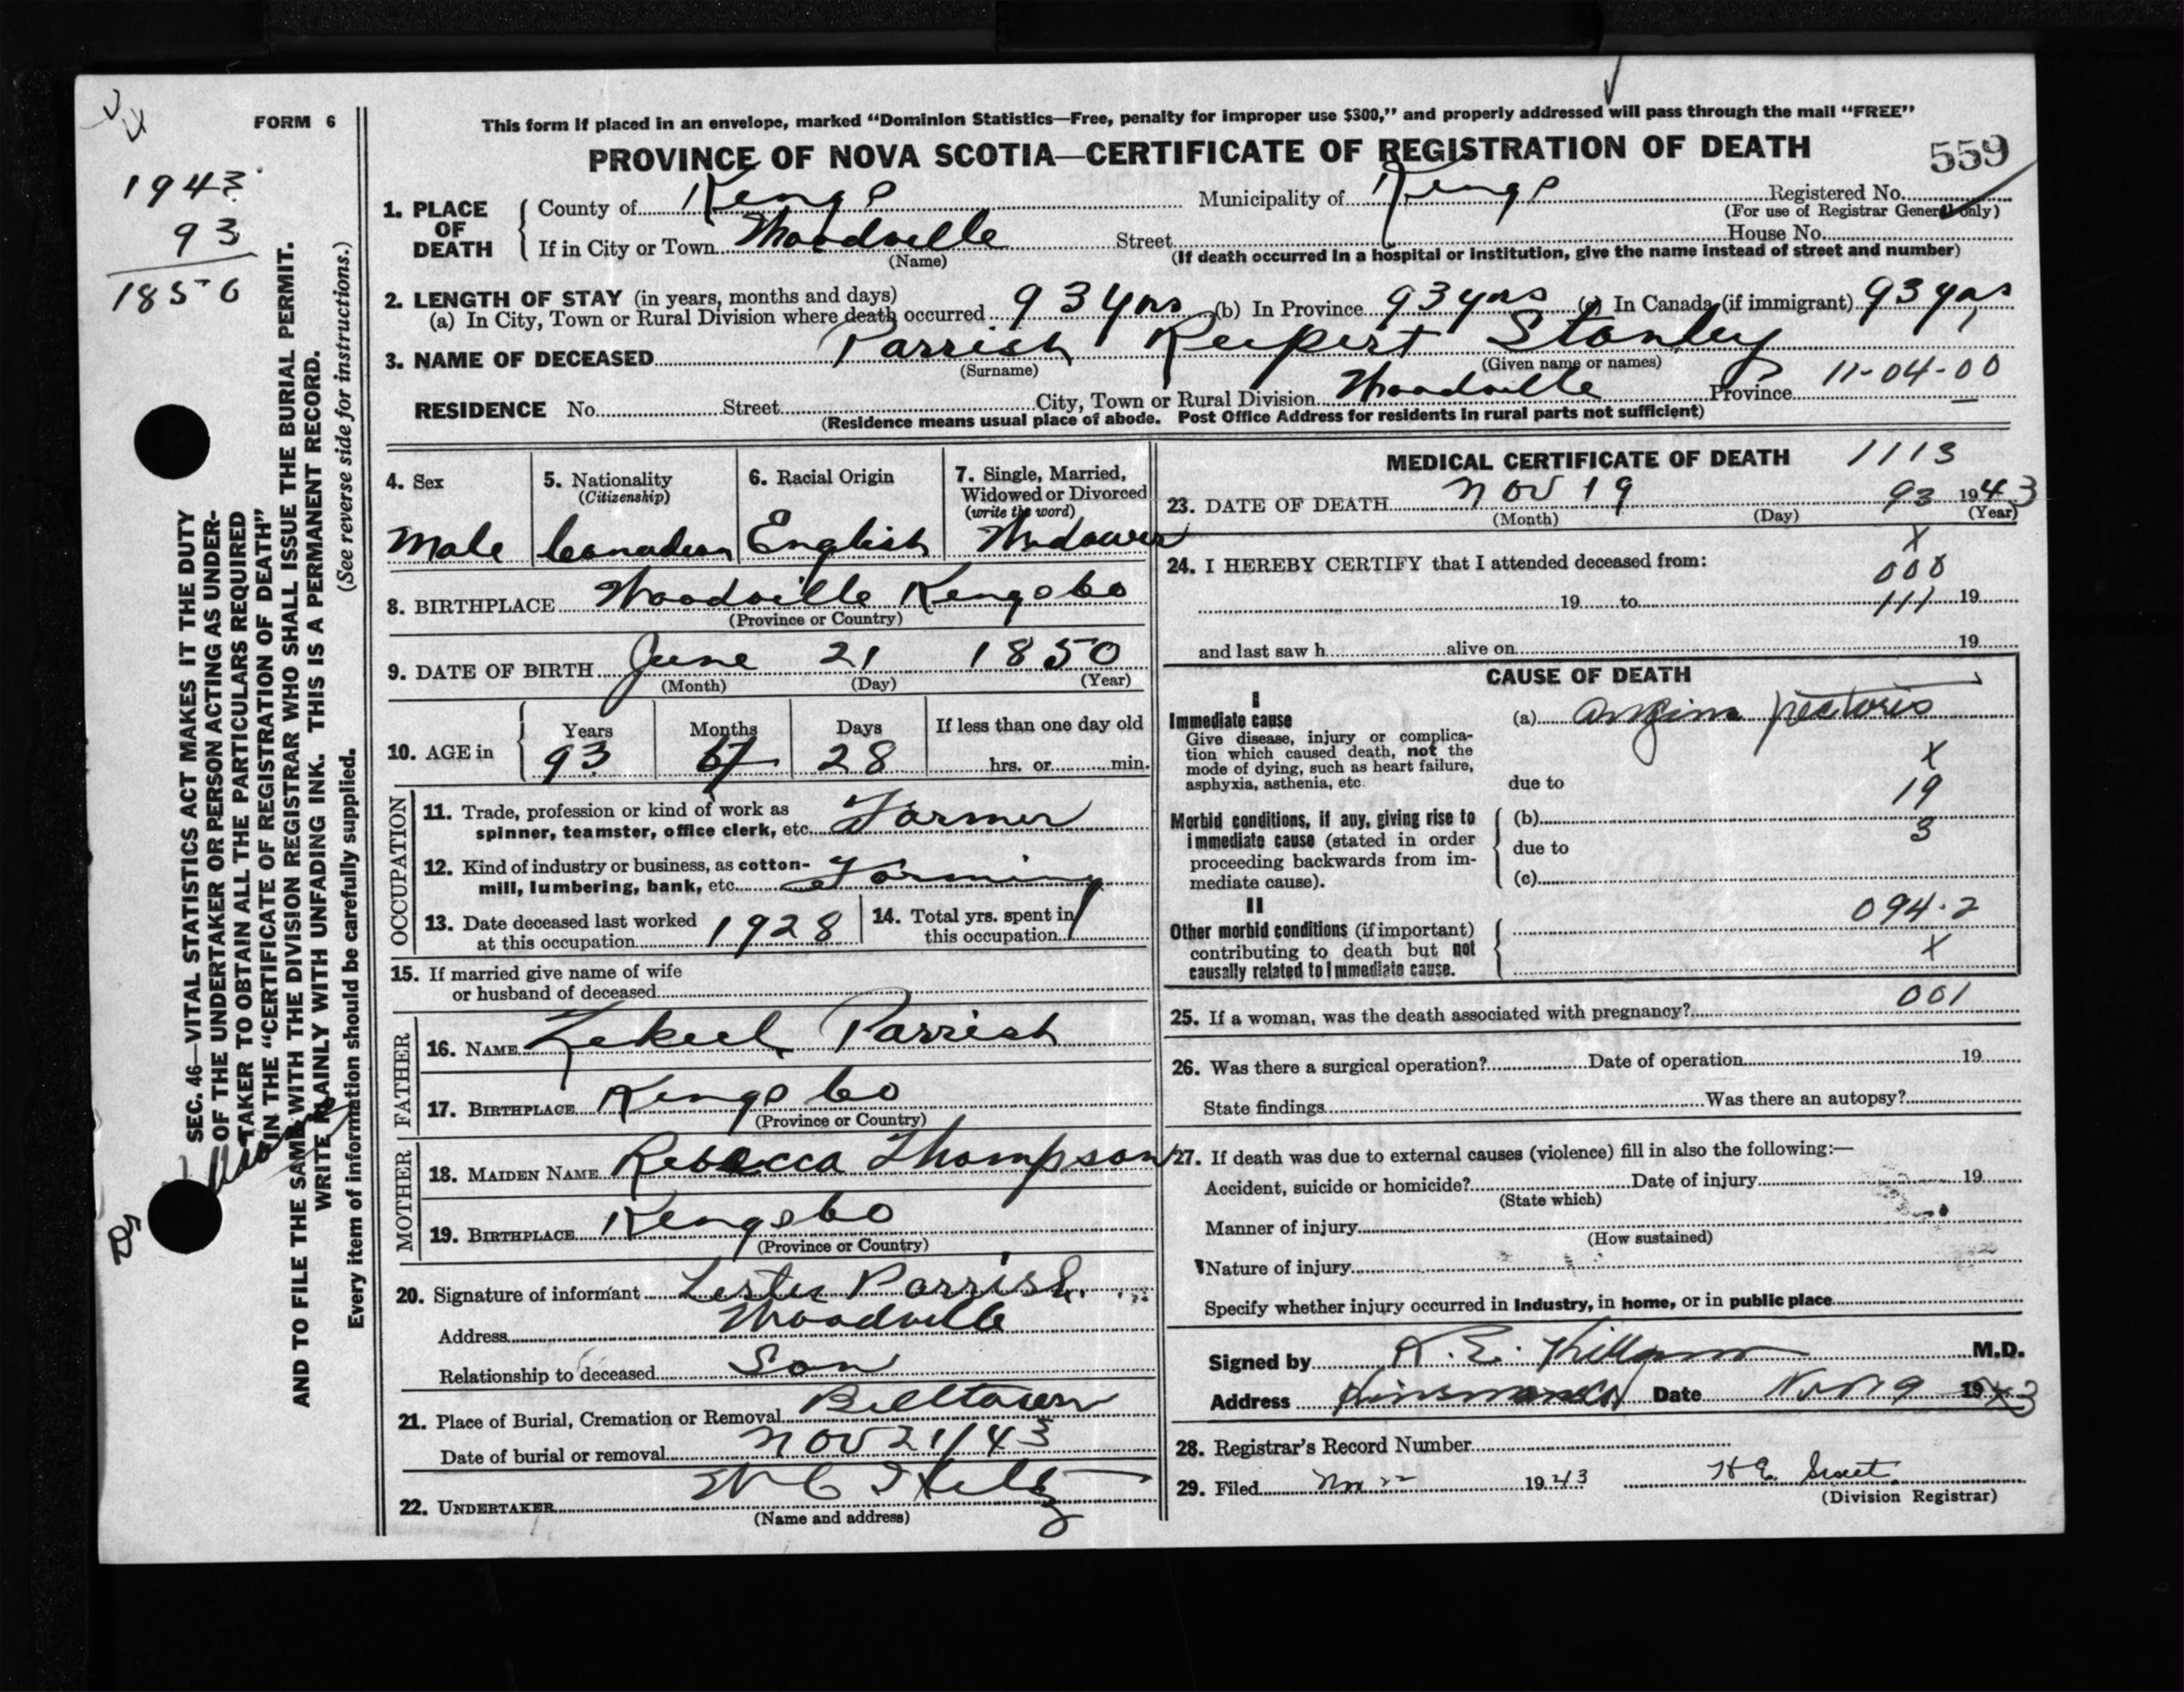 FORM 6
This form if placed in an envelope, marked “Dominion Statistics—Free, penalty for improper use $300,” and properly addressed will pass through the mail “FREE”
PROVINCE OF NOVA SCOTIA—CERTIFICATE OF REGISTRATION OF DEATH
559
1943
93
1850
1. PLACE OF DEATH
County of Kings Municipality of Kings Registered No.
(For use of Registrar General only)
If in City or Town Woodville Street House No.
(Name) (If death occurred in a hospital or institution, give the name instead of street and number)
2. LENGTH OF STAY (in years, months and days)
(a) In City, Town or Rural Division where death occurred 93 yrs (b) In Province 93 yrs (c) In Canada (if immigrant) 93 yrs
3. NAME OF DECEASED Parrish Rupert Stanley
(Surname) (Given name or names)
11-04-00
RESIDENCE No. Street City, Town or Rural Division Woodville Province
(Residence means usual place of abode. Post Office Address for residents in rural parts not sufficient)
4. Sex 5. Nationality (Citizenship) 6. Racial Origin 7. Single, Married, Widowed or Divorced (write the word)
Male Canadian English Widower
8. BIRTHPLACE Woodville Kings Co
(Province or Country)
9. DATE OF BIRTH June 21 1850
(Month) (Day) (Year)
10. AGE in Years Months Days If less than one day old
93 28 hrs. or min.
OCCUPATION
11. Trade, profession or kind of work as
spinner, teamster, office clerk, etc. Farmer
12. Kind of industry or business, as cotton-
mill, lumbering, bank, etc. Farming
13. Date deceased last worked
at this occupation 1928
14. Total yrs. spent in
this occupation
15. If married give name of wife
or husband of deceased
FATHER
16. NAME Zekiel Parrish
17. BIRTHPLACE Kings Co
(Province or Country)
MOTHER
18. MAIDEN NAME Rebecca Thompson
19. BIRTHPLACE Kings Co
(Province or Country)
20. Signature of informant Lester Parrish
Address Woodville
Relationship to deceased Son
21. Place of Burial, Cremation or Removal Billtown
Date of burial or removal Nov 21/43
22. UNDERTAKER
(Name and address)
MEDICAL CERTIFICATE OF DEATH 1113
23. DATE OF DEATH Nov 19 93 1943
(Month) (Day) (Year)
X
24. I HEREBY CERTIFY that I attended deceased from:
000
19 to 111 19
and last saw h alive on 19
CAUSE OF DEATH
I
Immediate cause
Give disease, injury or complica-
tion which caused death, not the
mode of dying, such as heart failure,
asphyxia, asthenia, etc.
(a) Angina pectoris
X
due to
19
Morbid conditions, if any, giving rise to
immediate cause (stated in order
proceeding backwards from im-
mediate cause).
(b)
3
due to
(c)
II
094.2
Other morbid conditions (if important)
contributing to death but not
causally related to immediate cause.
X
001
25. If a woman, was the death associated with pregnancy?
26. Was there a surgical operation? Date of operation 19
State findings Was there an autopsy?
27. If death was due to external causes (violence) fill in also the following:—
Accident, suicide or homicide? Date of injury 19
(State which)
Manner of injury
(How sustained)
Nature of injury
Specify whether injury occurred in Industry, in home, or in public place
Signed by R. E. Killam M.D.
Address Date Nov 19 1943
28. Registrar's Record Number
29. Filed Nov 22 1943 H E
(Division Registrar)
SEC. 46—VITAL STATISTICS ACT MAKES IT THE DUTY
OF THE UNDERTAKER OR PERSON ACTING AS UNDER-
TAKER TO OBTAIN ALL THE PARTICULARS REQUIRED
IN THE “CERTIFICATE OF REGISTRATION OF DEATH”
AND TO FILE THE SAME WITH THE DIVISION REGISTRAR WHO SHALL ISSUE THE BURIAL PERMIT.
WRITE PLAINLY WITH UNFADING INK. THIS IS A PERMANENT RECORD.
Every item of information should be carefully supplied. (See reverse side for instructions.)